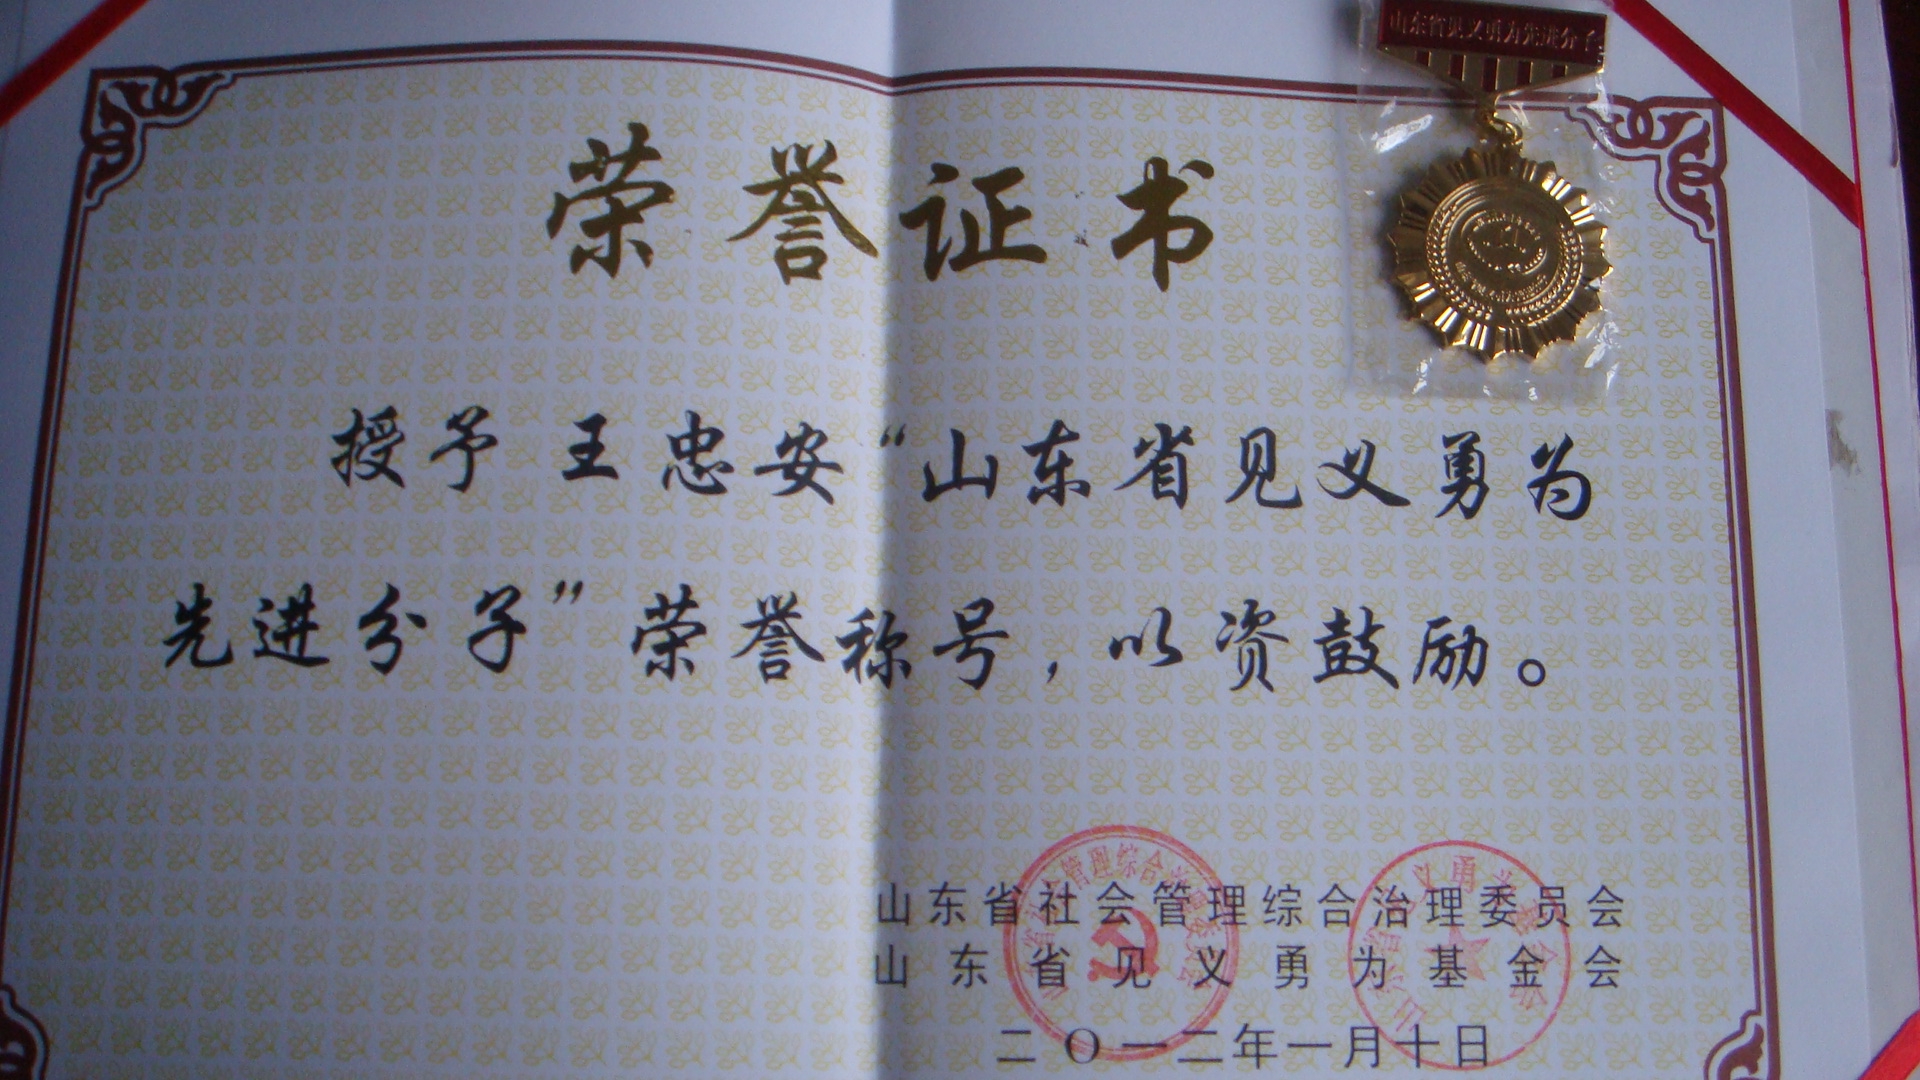 山东省见义勇为先进分子
荣誉证书
授予 王忠安“山东省见义勇为
先进分子”荣誉称号，以资鼓励。
山东省社会管理综合治理委员会
山东省见义勇为基金会
二〇一二年一月十日